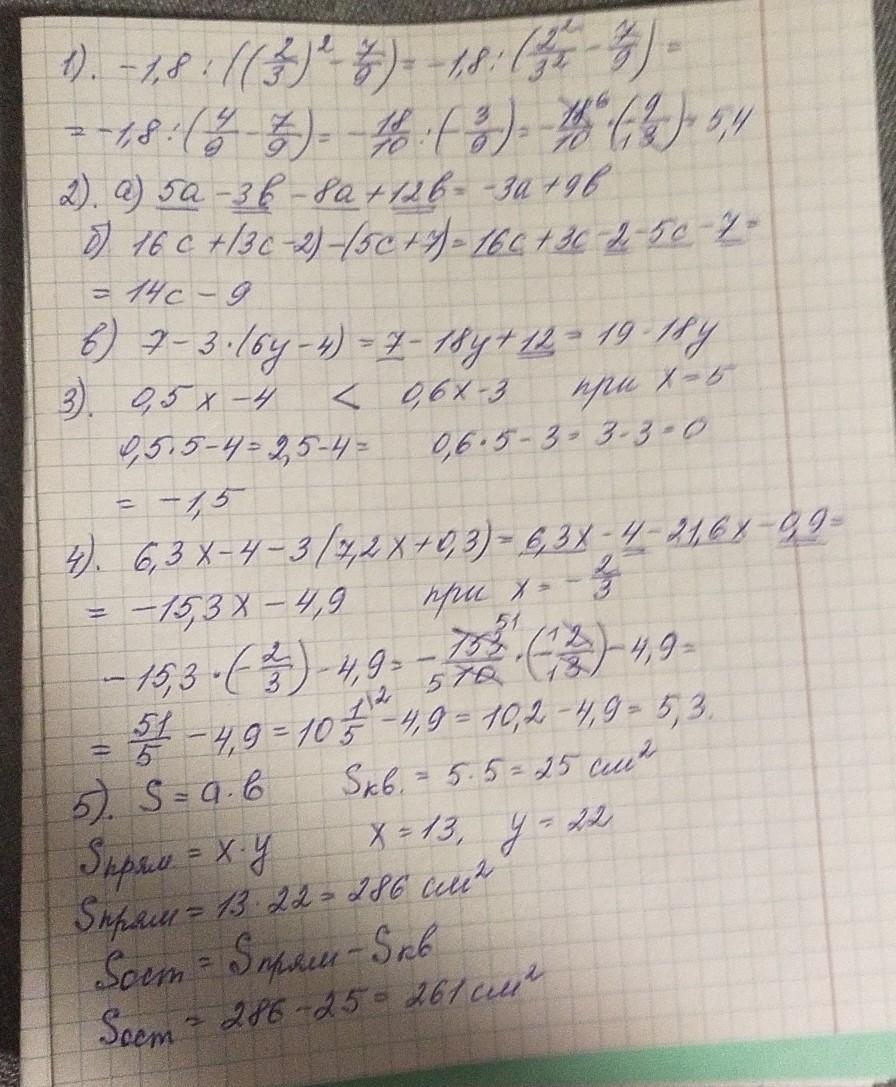 1). -1,8 : ((2/3)² - 7/9) = -1,8 : (2²/3² - 7/9) =
= -1,8 : (4/9 - 7/9) = -18/10 : (-3/9) = -18⁶/10 · (-9/13) = 5,4
2). а) 5a - 3b - 8a + 12b = -3a + 9b
б) 16c + (3c - 2) - (5c + 7) = 16c + 3c - 2 - 5c - 7 =
= 14c - 9
в) 7 - 3 · (6y - 4) = 7 - 18y + 12 = 19 - 18y
3). 0,5x - 4 < 0,6x - 3 при x = 5
0,5 · 5 - 4 = 2,5 - 4 = 0,6 · 5 - 3 = 3 - 3 = 0
= -1,5
4). 6,3x - 4 - 3(7,2x + 0,3) = 6,3x - 4 - 21,6x - 0,9 =
= -15,3x - 4,9 при x = -2/3
-15,3 · (-2/3) - 4,9 = -153 51/5 10 · (-12/13) - 4,9 =
= 51/5 - 4,9 = 10 1/5\2 - 4,9 = 10,2 - 4,9 = 5,3.
5). S = a · b Sкв. = 5 · 5 = 25 см²
Sпрям. = x · y x = 13, y = 22
Sпрям = 13 · 22 = 286 см²
Sост = Sпрям - Sкв
Sост = 286 - 25 = 261 см²